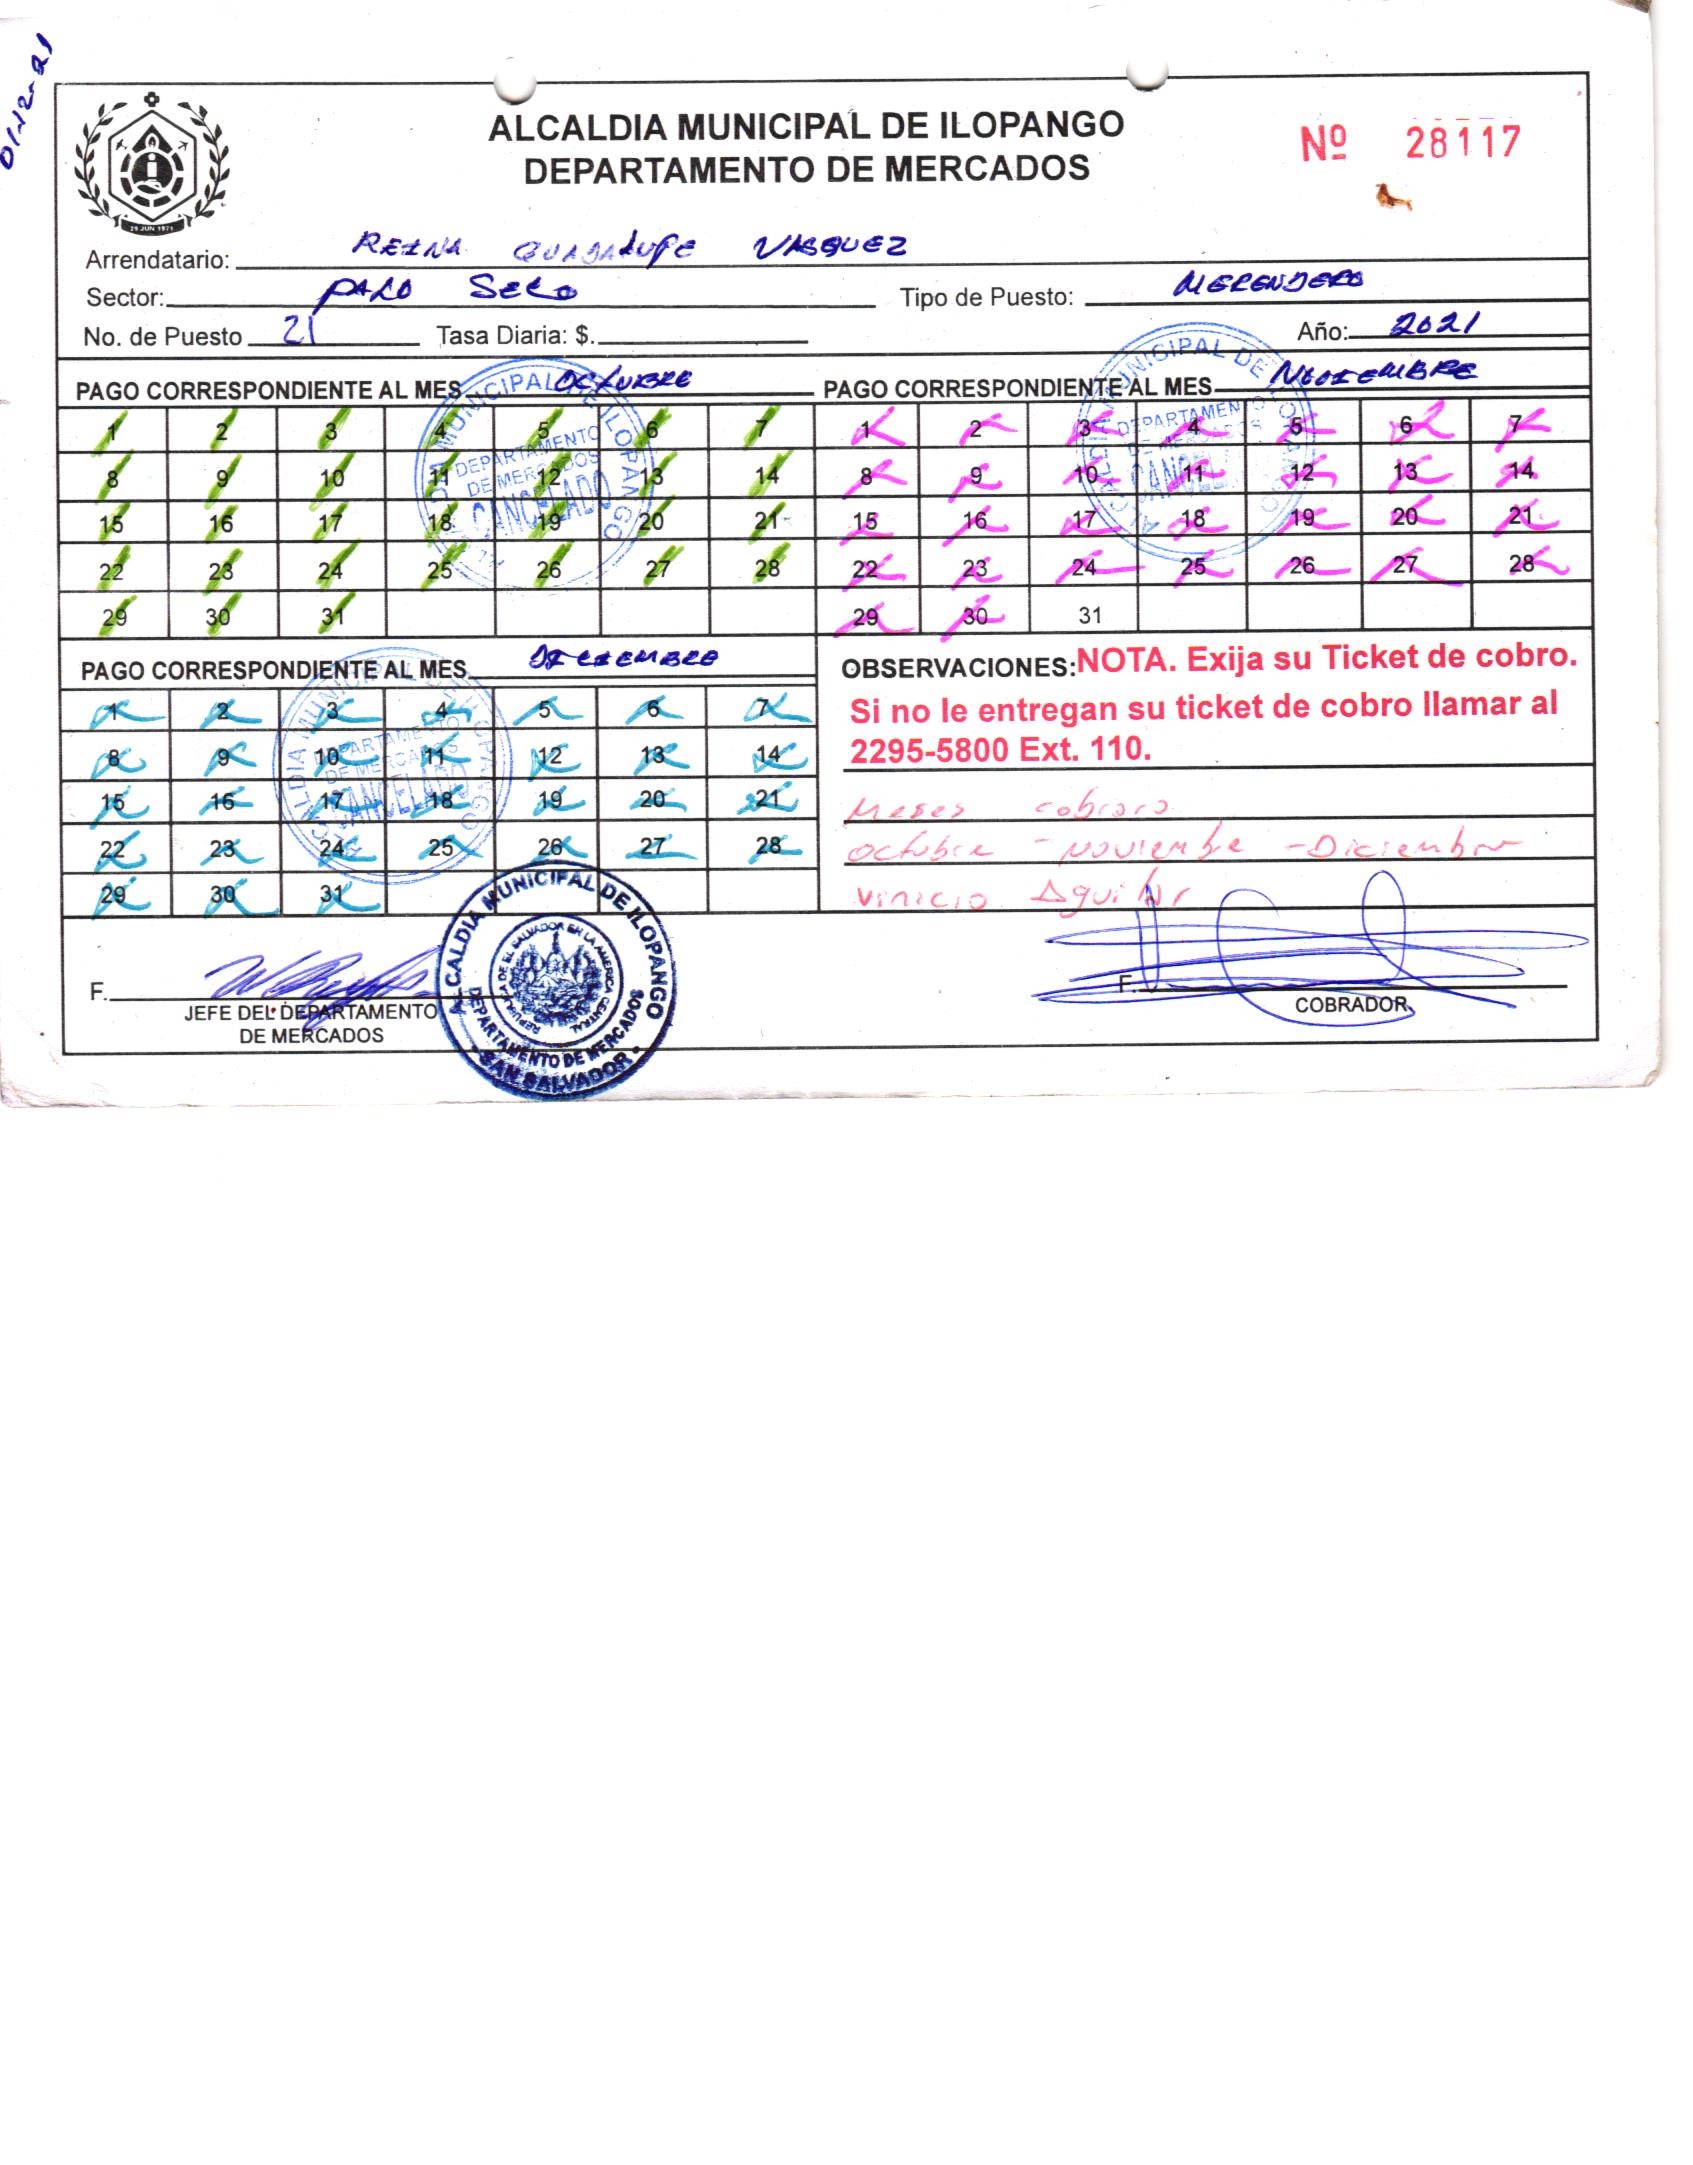 01-12-21
ALCALDIA MUNICIPAL DE ILOPANGO
DEPARTAMENTO DE MERCADOS
Nº 28117
29 JUN 1971
Arrendatario: REINA GUADALUPE VASQUEZ
Sector: PALO SECO Tipo de Puesto: MERENDERO
No. de Puesto 21 Tasa Diaria: $. Año: 2021
PAGO CORRESPONDIENTE AL MES OCTUBRE
1 2 3 4 5 6 7
8 9 10 11 12 13 14
15 16 17 18 19 20 21
22 23 24 25 26 27 28
29 30 31
ALCALDIA MUNICIPAL DE ILOPANGO
DEPARTAMENTO
DE MERCADOS
CANCELADO
PAGO CORRESPONDIENTE AL MES NOVIEMBRE
1 2 3 4 5 6 7
8 9 10 11 12 13 14
15 16 17 18 19 20 21
22 23 24 25 26 27 28
29 30 31
ALCALDIA MUNICIPAL DE ILOPANGO
DEPARTAMENTO
DE MERCADOS
CANCELADO
PAGO CORRESPONDIENTE AL MES DICIEMBRE
1 2 3 4 5 6 7
8 9 10 11 12 13 14
15 16 17 18 19 20 21
22 23 24 25 26 27 28
29 30 31
ALCALDIA MUNICIPAL DE ILOPANGO
DEPARTAMENTO
DE MERCADOS
CANCELADO
OBSERVACIONES: NOTA. Exija su Ticket de cobro.
Si no le entregan su ticket de cobro llamar al
2295-5800 Ext. 110.
Meses cobraro
octubre - noviembre - Diciembre
Vinicio Aguilar
F.
JEFE DEL DEPARTAMENTO
DE MERCADOS
ALCALDIA MUNICIPAL DE ILOPANGO
REPUBLICA DE EL SALVADOR EN LA AMERICA CENTRAL
DEPARTAMENTO DE MERCADOS
SAN SALVADOR
F.
COBRADOR